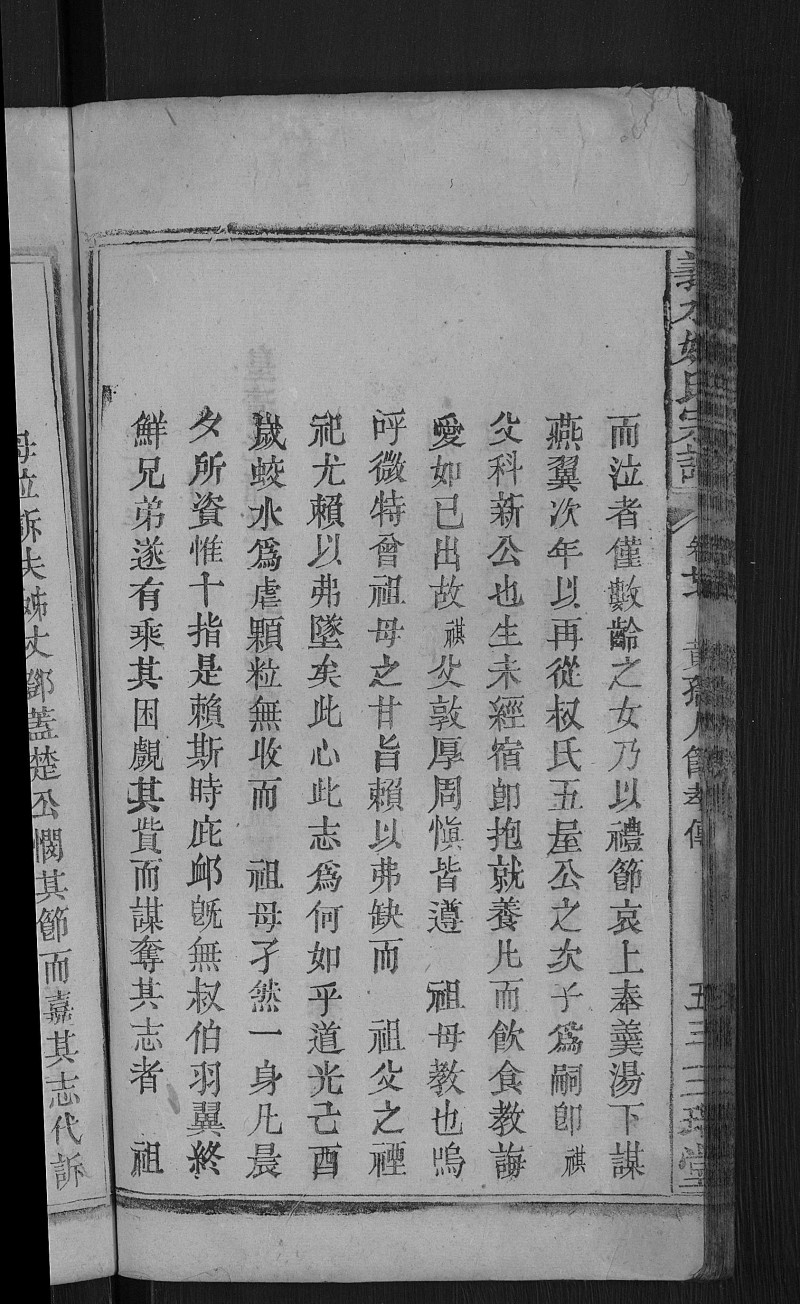 氏宗譜 卷 節孝傳 五三 三 堂
而泣者僅數齡之女乃以禮節哀上奉羹湯下謀
燕翼次年以再從叔氏五屋公之次子爲嗣卽祺
父科新公也生未經宿卽抱就養凡而飲食教誨
愛如已出故祺父敦厚周愼皆遵 祖母教也嗚
呼微特曾祖母之甘旨賴以弗缺而 祖父之禋
祀尤賴以弗墜矣此心此志爲何如乎道光己酉
歲蛟水爲虐顆粒無收而 祖母孑然一身凡晨
夕所資惟十指是賴斯時庇䘏旣無叔伯羽翼終
鮮兄弟遂有乘其困覷其貲而謀奪其志者 祖
母泣訴夫姊丈鄧蓋楚公憫其節而嘉其志代訴